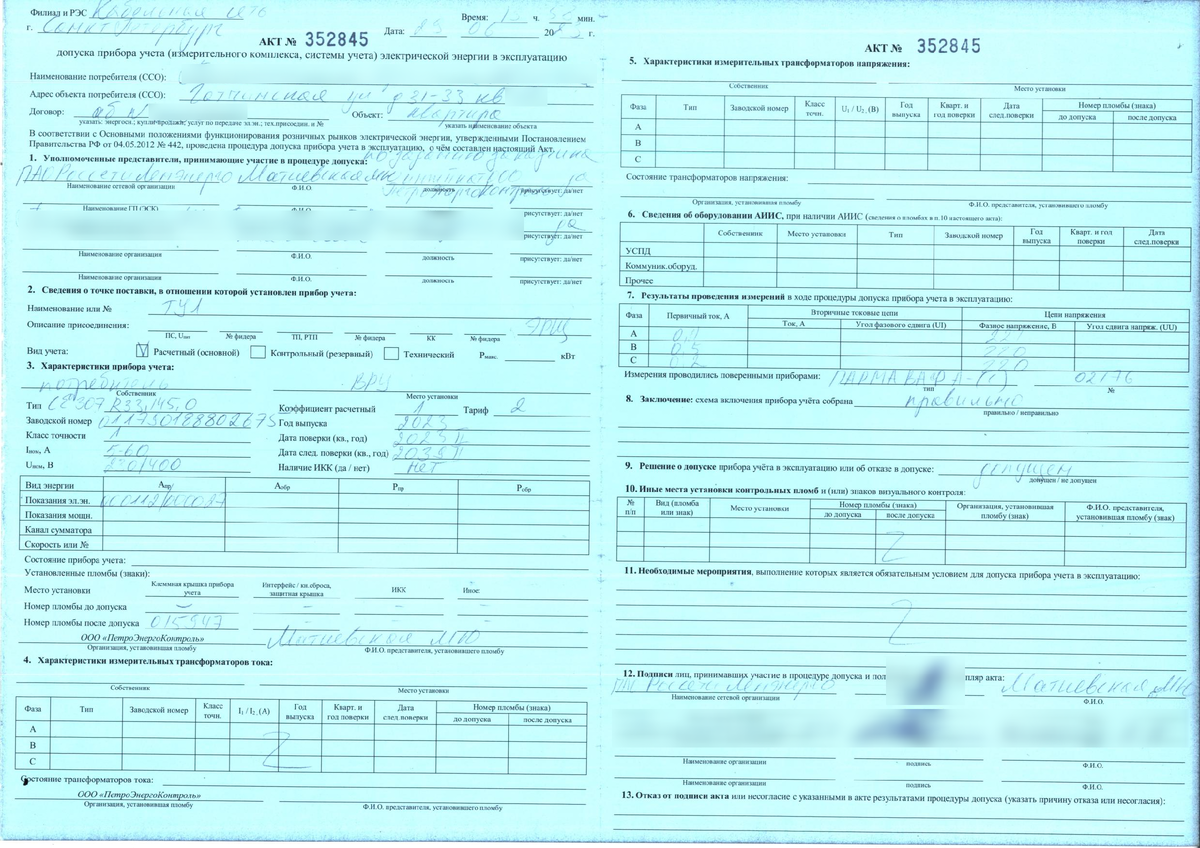 Филиал и РЭС Кабельная сеть Время: ч. мин.
г. Санкт-Петербург Дата: 23 06 2023 г.
АКТ № 352845
допуска прибора учета (измерительного комплекса, системы учета) электрической энергии в эксплуатацию
Наименование потребителя (ССО):
Адрес объекта потребителя (ССО): Гатчинская ул д 31-33 кв
Договор: Объект: квартира
указать: энергосн.; купли-продажи; услуг по передаче эл.эн.; тех.присоедин. и № указать наименование объекта
В соответствии с Основными положениями функционирования розничных рынков электрической энергии, утвержденными Постановлением
Правительства РФ от 04.05.2012 № 442, проведена процедура допуска прибора учета в эксплуатацию, о чём составлен настоящий Акт.
1. Уполномоченные представители, принимающие участие в процедуре допуска:
ПАО Россети Ленэнерго Матиевская
Наименование сетевой организации Ф.И.О. должность присутствует: да/нет
Наименование ГП (ЭСК) Ф.И.О. присутствует: да/нет
да
присутствует: да/нет
Наименование организации Ф.И.О. должность присутствует: да/нет
Наименование организации Ф.И.О. должность присутствует: да/нет
2. Сведения о точке поставки, в отношении которой установлен прибор учета:
Наименование или № ТУ1
Описание присоединения: ЭРЩ
ПС, Uном № фидера ТП, РТП № фидера КК № фидера
Вид учета: V Расчетный (основной) Контрольный (резервный) Технический Pмакс. кВт
3. Характеристики прибора учета:
потребитель ВРУ
Собственник Место установки
Тип CE307 R33.145.0 Коэффициент расчетный 1 Тариф 2
Заводской номер 011750188802675 Год выпуска 2023
Класс точности 1 Дата поверки (кв., год) 2023 II
Iном, А 5-60 Дата след. поверки (кв., год) 2039 II
Uном, В 230/400 Наличие ИКК (да / нет) нет
Вид энергии Апр/ Аобр Рпр Робр
Показания эл.эн.
Показания мощн.
Канал сумматора
Скорость или №
Состояние прибора учета:
Установленные пломбы (знаки):
Место установки Клеммная крышка прибора учета Интерфейс / кн.сброса, защитная крышка ИКК Иное:
Номер пломбы до допуска – – – –
Номер пломбы после допуска 015947 – – –
ООО «ПетроЭнергоКонтроль» Матиевская МЮ
Организация, установившая пломбу Ф.И.О. представителя, установившего пломбу
4. Характеристики измерительных трансформаторов тока:
Собственник Место установки
Фаза Тип Заводской номер Класс точн. I₁ / I₂, (А) Год выпуска Кварт. и год поверки Дата след.поверки Номер пломбы (знака)
до допуска после допуска
А
В
С
Состояние трансформаторов тока:
ООО «ПетроЭнергоКонтроль»
Организация, установившая пломбу Ф.И.О. представителя, установившего пломбу
АКТ № 352845
5. Характеристики измерительных трансформаторов напряжения:
Собственник Место установки
Фаза Тип Заводской номер Класс точн. U₁ / U₂, (В) Год выпуска Кварт. и год поверки Дата след.поверки Номер пломбы (знака)
до допуска после допуска
А
В
С
Состояние трансформаторов напряжения:
Организация, установившая пломбу Ф.И.О. представителя, установившего пломбу
6. Сведения об оборудовании АИИС, при наличии АИИС (сведения о пломбах в п.10 настоящего акта):
Собственник Место установки Тип Заводской номер Год выпуска Кварт. и год поверки Дата след.поверки
УСПД
Коммуник.оборуд.
Прочее
7. Результаты проведения измерений в ходе процедуры допуска прибора учета в эксплуатацию:
Фаза Первичный ток, А Вторичные токовые цепи Цепи напряжения
Ток, А Угол фазового сдвига (UI) Фазное напряжение, В Угол сдвига напряж. (UU)
А
В 0.5 220
С 0.2 220
Измерения проводились поверенными приборами: ПАРМА ВАФ А-(1) 02176
тип №
8. Заключение: схема включения прибора учёта собрана правильно
правильно / неправильно
9. Решение о допуске прибора учёта в эксплуатацию или об отказе в допуске: допущен
допущен / не допущен
10. Иные места установки контрольных пломб и (или) знаков визуального контроля:
№ п/п Вид (пломба или знак) Место установки Номер пломбы (знака) Организация, установившая пломбу (знак) Ф.И.О. представителя, установившая пломбу (звак)
до допуска после допуска
11. Необходимые мероприятия, выполнение которых является обязательным условием для допуска прибора учета в эксплуатацию:
12. Подписи лиц, принимавших участие в процедуре допуска и пол пляр акта:
ПАО Россети Ленэнерго Матиевская МЮ
Наименование сетевой организации Ф.И.О.
Наименование организации подпись Ф.И.О.
Наименование организации подпись Ф.И.О.
13. Отказ от подписи акта или несогласие с указанными в акте результатами процедуры допуска (указать причину отказа или несогласия):